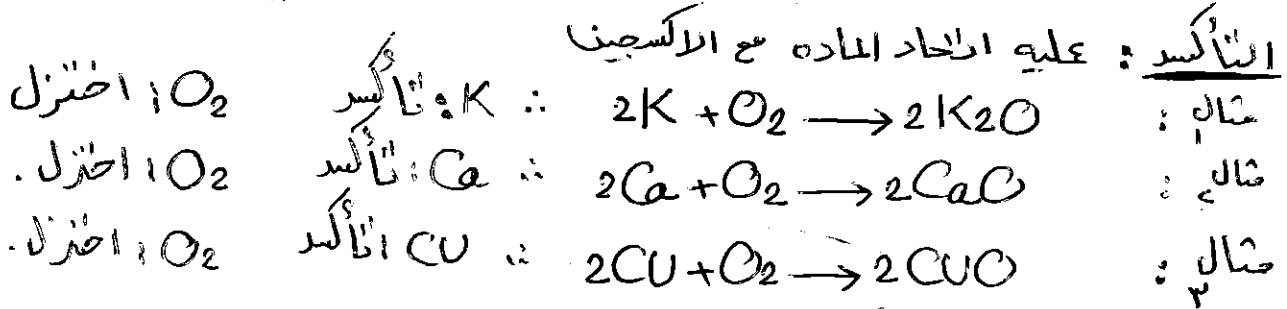 التأكسد : عليه اتحاد الماده مع الاكسجين
مثال١ : 2K + O2 → 2K2O ∴ K : تأكسد O2 : اختزل
مثال٢ : 2Ca + O2 → 2CaO ∴ Ca : تأكسد O2 : اختزل.
مثال٣ : 2CU + O2 → 2CUO ∴ CU : تأكسد O2 : اختزل.